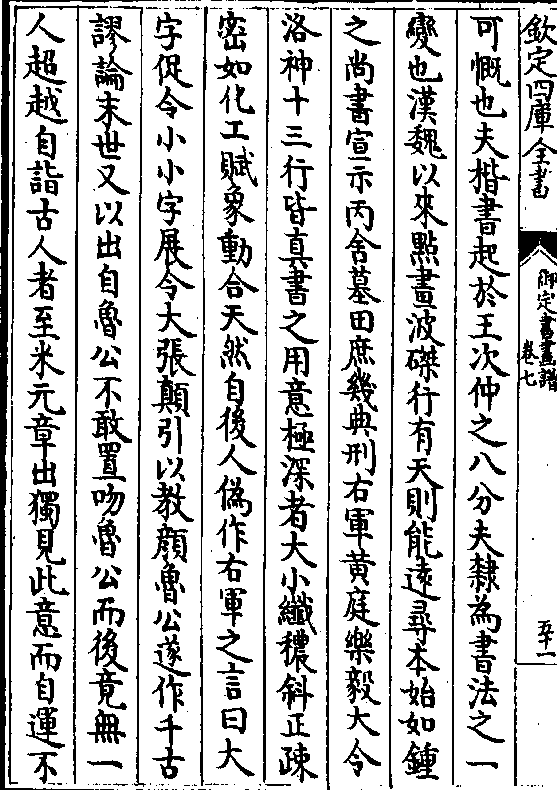 欽定四庫全書
御定書畫譜
卷七
五十一
可慨也夫楷書起於王次仲之八分夫隸為書法之一
變也漢魏以來點畫波磔行有天則能遠尋本始如鍾
之尚書宣示丙舍墓田庶幾典刑右軍黃庭樂毅大令
洛神十三行皆真書之用意極深者大小纖穠斜正疎
密如化工賦象動合天然自後人偽作右軍之言曰大
字促令小小字展令大張顛引以教顔魯公遂作千古
謬論末世又以出自魯公不敢置吻魯公而後竟無一
人超越自詣古人者至米元章出獨見此意而自運不